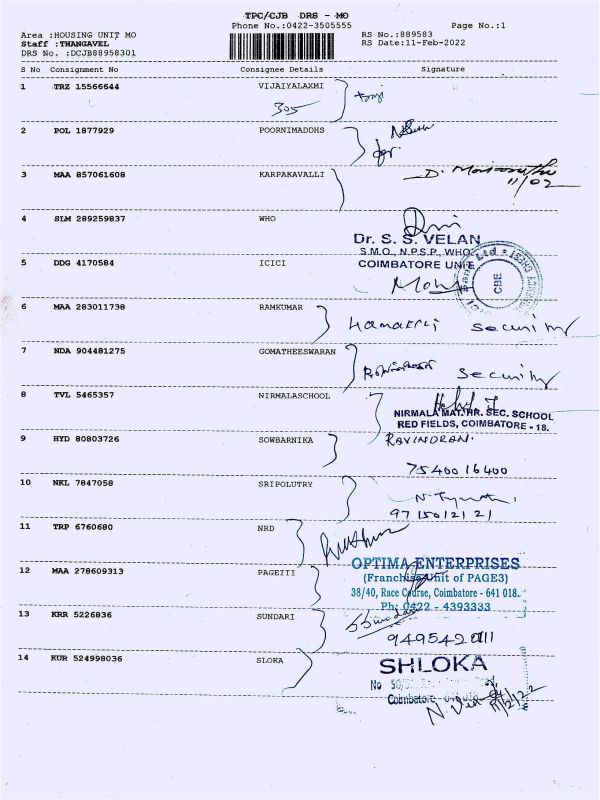 TPC/CJB DRS - MO
Phone No.:0422-3505555
Page No.:1
Area :HOUSING UNIT MO
RS No.:889583
Staff :THANGAVEL
RS Date:11-Feb-2022
DRS No. :DCJB88958301
S No Consignment No Consignee Details Signature
1 TRZ 15566644 VIJAIYALAXMI
305
2 POL 1877929 POORNIMADDHS
3 MAA 857061608 KARPAKAVALLI
D.
11/02
4 SLM 289259837 WHO
Dr. S. S. VELAN
S.M.O., N.P.S.P., WHO
COIMBATORE UNIT
5 DDG 4170584 ICICI
CBE
6 MAA 283011738 RAMKUMAR
security
7 NDA 904481275 GOMATHEESWARAN
security
8 TVL 5465357 NIRMALASCHOOL
NIRMALA MAT. HR. SEC. SCHOOL
RED FIELDS, COIMBATORE - 18.
9 HYD 80803726 SOWBARNIKA
RAVINDRAN.
75400 16400
10 NKL 7847058 SRIPOLUTRY
97150 12121
11 TRP 6760680 NRD
12 MAA 278609313 PAGEITI
OPTIMA ENTERPRISES
(Franchise Unit of PAGE3)
38/40, Race Course, Coimbatore - 641 018.
Ph: 0422 - 4393333
13 KRR 5226836 SUNDARI
14 KUR 524998036 SLOKA
SHLOKA
No
Coimbatore